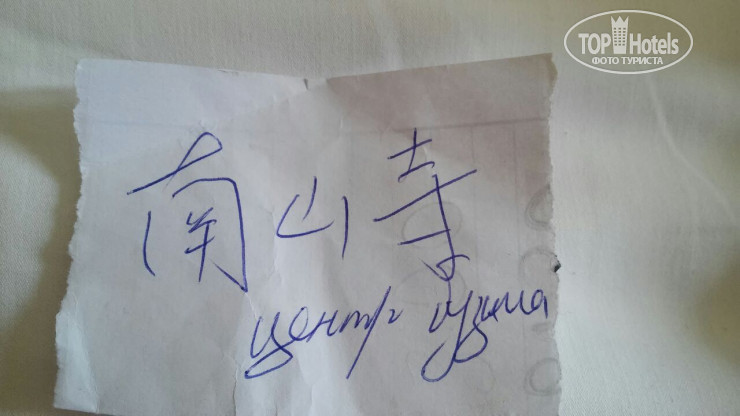 TOP Hotels
ФОТО ТУРИСТА
南山寺
центр